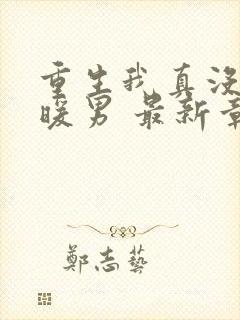 重生我真没
暖男 最新章
鄭志藝